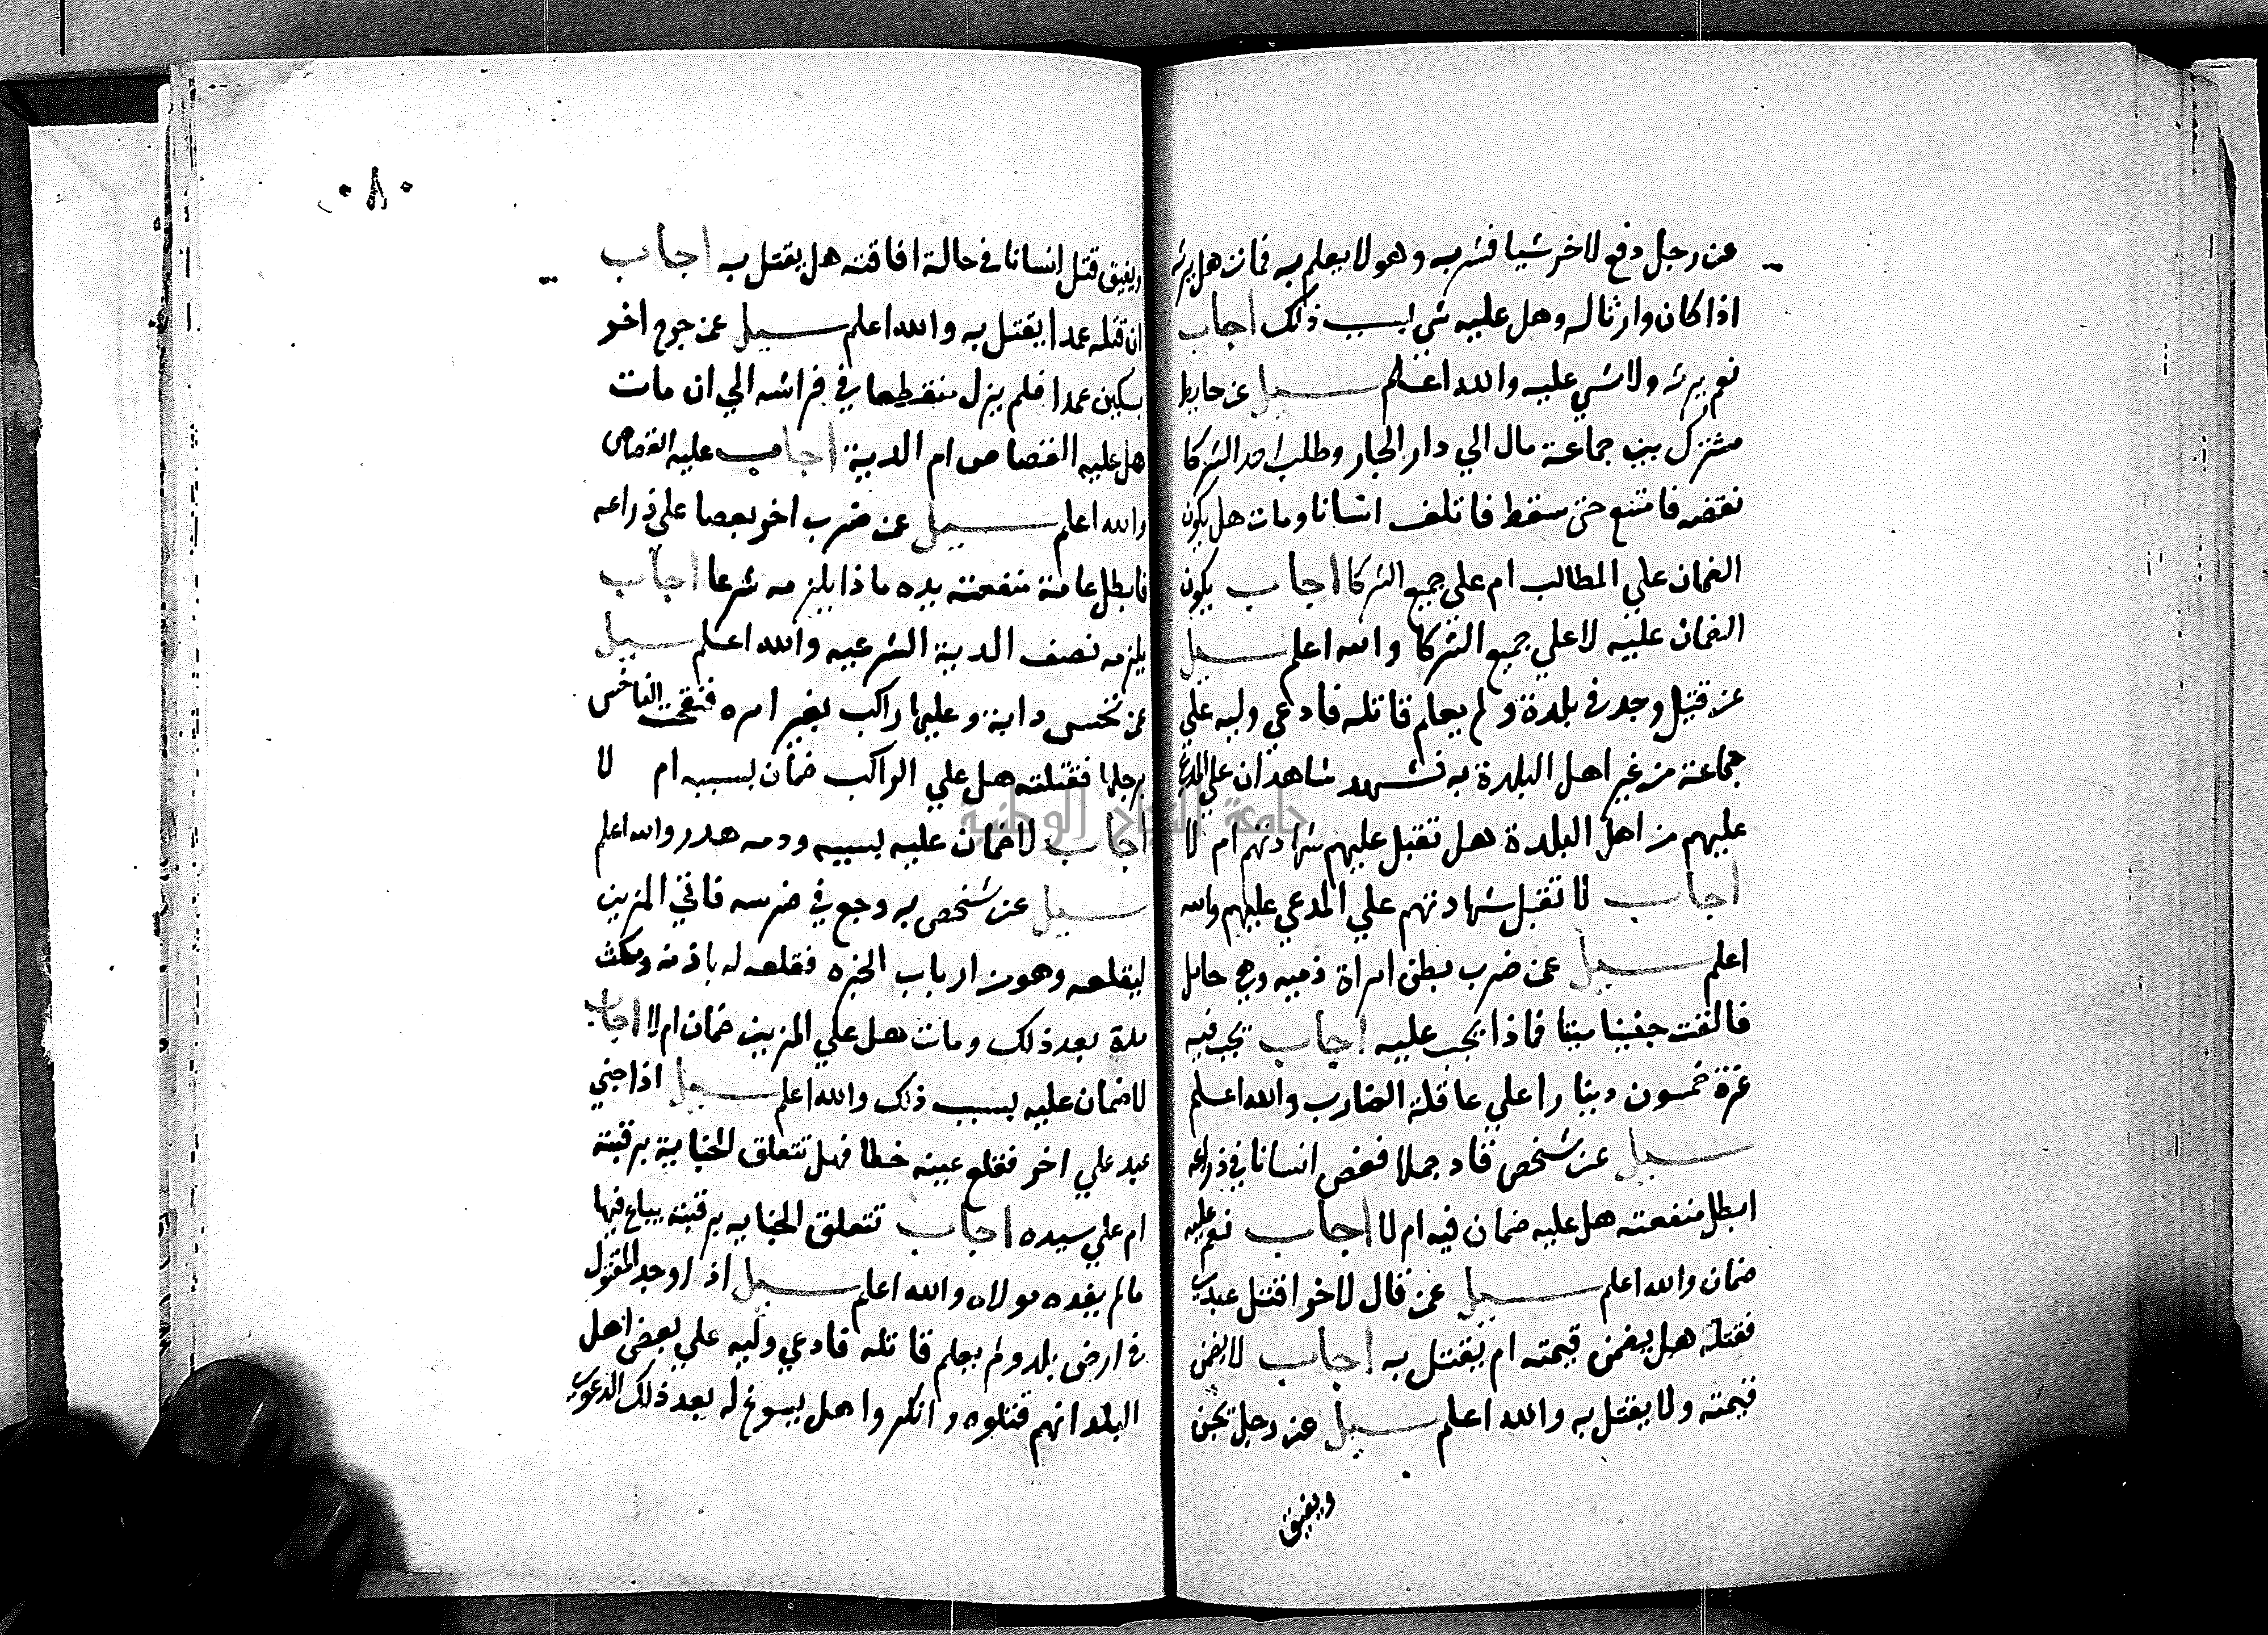 عن رجل دفع لاخر شيا فشربه وهو لا يعلم به فمات هل يرثه
اذا كان وارثا له وهل عليه شي بسبب ذلك اجاب
نعم يرثه ولا شي عليه والله اعلم سيل عن حايط
مشترك بين جماعة مال الي دار الجار وطلب احد الشركا
نقضه فامتنع حتى سقط فاتلف انسانا ومات هل يكون
الضمان علي المطالب ام علي جميع الشركا اجاب يكون
الضمان عليه لا علي جميع الشركا والله اعلم سيل
عن قتيل وجد في بلدة ولم يعلم قاتله فادعي وليه علي
جماعة من غير اهل البلدة به فشهد شاهدان علي المدعي
عليهم من اهل البلدة هل تقبل عليهم شهادتهم ام لا
اجاب لا تقبل شهادتهم علي المدعي عليهم والله
اعلم سيل عمن ضرب بطن امراة ذميه وهي حامل
فالقت جنينا ميتا فماذا يجب عليه اجاب تجب فيه
غرة خمسون دينارا علي عاقلة الضارب والله اعلم
سيل عن شخص قاد جملا فعض انسانا في ذراعه
ابطل منفعته هل عليه ضمان فيه ام لا اجاب نعم عليه
ضمان والله اعلم سيل عمن قال لاخر اقتل عبدي
فقتله هل يضمن قيمته ام يقتل به اجاب لا يضمن
قيمته ولا يقتل به والله اعلم سيل عن رجل يجن
ويفيق
٠٨٠
ويفيق قتل انسانا في حالة افاقته هل يقتل به اجاب
ان قتله عمدا يقتل به والله اعلم سيل عمن جرح اخر
بسكين عمدا فلم يزل منقطعا في فراشه الي ان مات
هل عليه القصاص ام الدية اجاب عليه القصاص
والله اعلم سيل عن ضرب اخر بعصا علي ذراعه
فابطل عامة منفعته يده ماذا يلزمه شرعا اجاب
يلزمه نصف الدية الشرعيه والله اعلم سيل
عمن نخس دابة وعليها راكب بغير امره فنفحت الناخس
برجلها فقتلته هل علي الراكب ضمان بسببه ام لا
اجاب لا ضمان عليه بسببه ودمه هدر والله اعلم
سيل عن شخص به وجع في ضرسه فاتي المزين
ليقلعه وهو من ارباب الخبره فقلعه له باذنه ومكث
مدة بعد ذلك ومات هل علي المزين ضمان ام لا اجاب
لا ضمان عليه بسبب ذلك والله اعلم سيل اذا جني
عبد علي اخر فقلع عينه خطا فهل تتعلق الجناية برقبته
ام علي سيده اجاب تتعلق الجنايه برقبته يباع فيها
مالم يفده مولاه والله اعلم سيل اذا وجد المقتول
في ارض بلد ولم يعلم قاتله فادعي وليه علي بعض اهل
البلد انهم قتلوه وانكروا هل يسوغ له بعد ذلك الدعوي